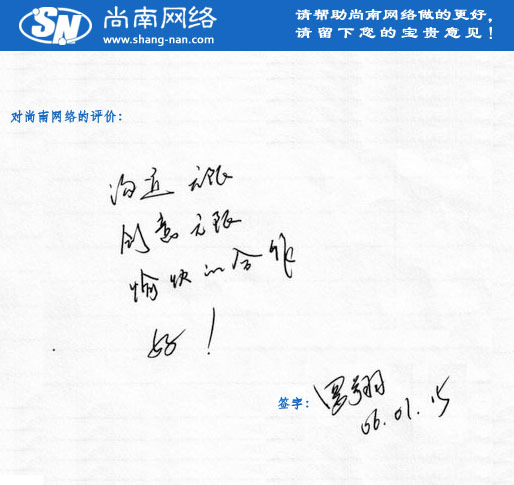 SN 尚南网络
www.shang-nan.com
请帮助尚南网络做的更好,
请留下您的宝贵意见!
对尚南网络的评价:
沟通无限
创意无限
愉快的合作
好!
签字: 罗翔
06.01.15